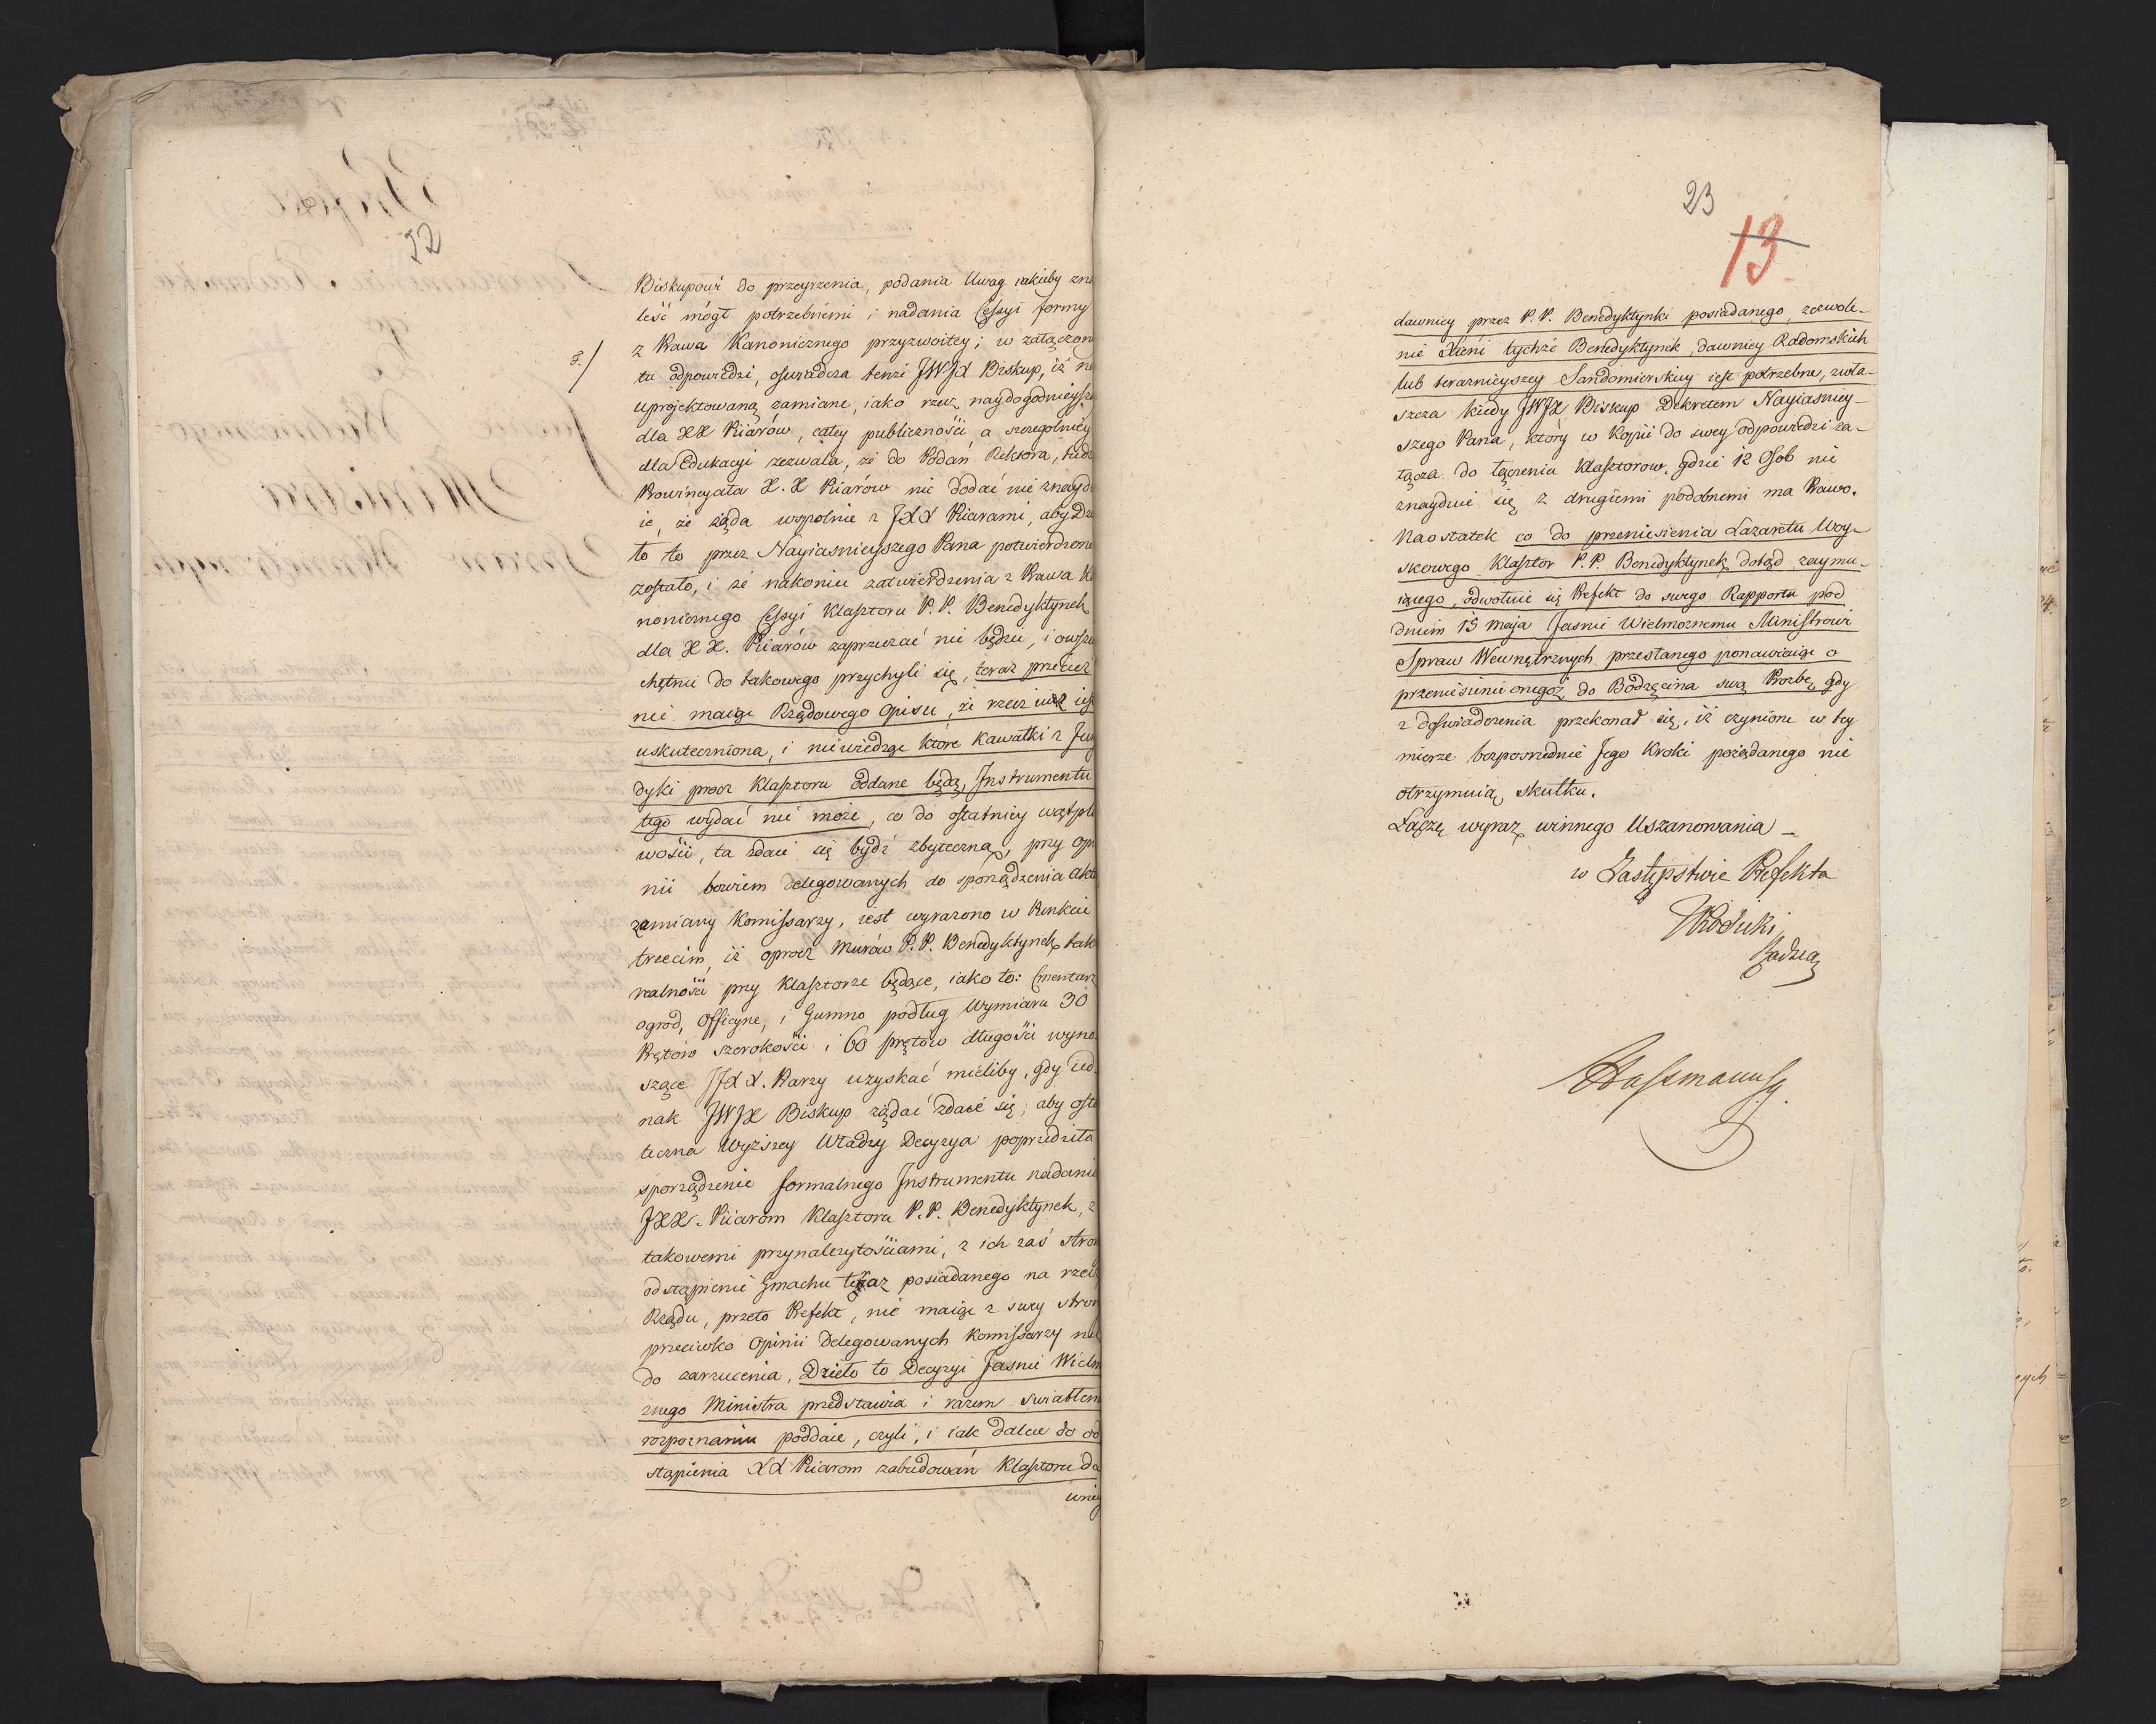 22
Biskupowi do przeyrzenia, podania Uwag iakieby zna
leść mógł potrzebnemi i nadania Cessyi formy
z Prawa Kanonicznego przyzwoitey; w załączon
3./
tu odpowiedzi, oswiadcza tenże JWJX Biskup, iż na
uprojektowaną zamianę, iako rzecz naydogodnieysz
dla XX Piiarów, całey publiczności, a szczegolniey
dla Edukacyi zezwala, że do Podań Rektora, tudz
Prowincyała X.X Piiarów nic dodać nie znayd
ie, że żąda wspolnie z JXX Piiarami, aby Dzie
ło to przez Nayiasnieyszego Pana potwierdzone
zostało, i że nakoniec zatwierdzenia z Prawa Ka
nonicznego Cessyi Klasztoru P.P. Benedyktynek
dla XX. Piiarów zaprzeczać nie będzie, i owsze
chętnie do takowego przychyli się, teraz przecież
nie maiąc Rządowego Opisu, że rzecz iuż iest
uskuteczniona, i niewiedząc ktore Kawałki z Jury
dyki przez Klasztoru oddane będą, Instrumentu
tego wydać nie może, co do ostatniey wątpli
wości, ta zdaie się bydź zbyteczną, przy Opi
nii bowiem delegowanych do sporządzenia Aktu
zamiany Komissarzy, iest wyrażono w Punkcie
trzecim, iż oprocz Murów P.P. Benedyktynek tak
realności przy Klasztorze będące, iako to: Cmentarz
ogrod, Officynę, i Gumno podług Wymiaru 30
Prętów szerokości i 60 prętów długości wyno-
szące JJXX. Piarzy uzyskać mieliby, gdy ied-
nak JWJX Biskup żądać zdaie się, aby osta
teczna Wyższey Władzy Decyzya poprzedziła
sporządzenie formalnego Instrumentu nadania
JXX. Piiarom Klasztoru P.P. Benedyktynek, z
takowemi przynależytościami, z ich zaś stron
odstąpienie Gmachu teraz posiadanego na rzecz
Rządu, przeto Prefekt, nie maiąc z swey stron
przeciwko Opinii Delegowanych Komissarzy nic
do zarzucenia, Dzieło to Decyzyi Jasnie Wielm
żnego Ministra przedstawia i razem swiatłem
rozpoznaniu poddaie, czyli, i iak dalece do od
stąpienia XX Piiarom zabudowań Klasztoru da
wniey
23
13
dawniey przez P.P. Benedyktynki posiadanego, zezwole-
nie Xieni tychże Benedyktynek, dawniey Radomskich
lub teraznieyszey Sandomierskiey iest potrzebne, zwła-
szcza kiedy JWJX Biskup Dekretem Nayiasniey-
szego Pana, który w Kopii do swey odpowiedzi za-
łącza do łączenia Klasztorow, gdzie 12 Osob nie
znayduie się z drugiemi podobnemi ma Prawo.
Naostatek co do przeniesienia Lazaretu Woy-
skowego Klasztor P.P. Benedyktynek dotąd zaymu-
iącego, odwołuie się Prefekt do swego Rapportu pod
dniem 15 Maja Jasnie Wielmoznemu Ministrowi
Spraw Wewnętrznych przesłanego ponawiaiąc o
przeniesienie onegoż do Bodzęcina swą Prozbę, gdy
z doswiadczenia przekonał się, iż czynione w tey
mierze bezposrednie Jego Kroki pożądanego nie
otrzymuią skutku.
Łączę wyraz winnego Uszanowania _
w Zastępstwie Prefekta
Radzca